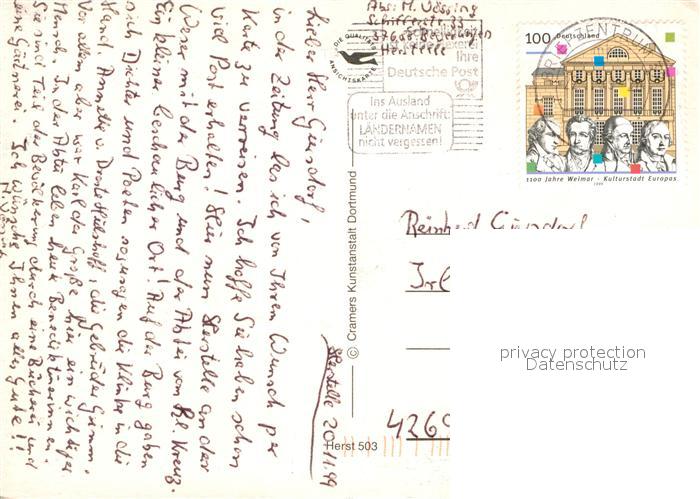 Abs: M. Vössing
Schifferstr. 33
37688 Beverungen
Herstelle
Ihre
Deutsche Post
Ins Ausland
unter die Anschrift:
LÄNDERNAMEN
nicht vergessen!
100 Deutschland
1100 Jahre Weimar - Kulturstadt Europas
1999
DIE QUALITÄTS
ANSICHTSKARTE
Herstelle 20.11.99
Lieber Herr Giersdorf,
in der Zeitung las ich von Ihrem Wunsch per
Karte zu verreisen. Ich hoffe Sie haben schon
viel Post erhalten! Hier nun Herstelle an der
Weser mit der Burg und der Abtei vom Hl. Kreuz.
Ein kleiner beschaulicher Ort! Auf der Burg gaben
sich Dichter und Poeten sozusagen die Klinke in die
Hand. Annette v. Droste Hülshoff, die Gebrüder Grimm.
Vor allem aber war Karl der Große hier ein wichtiger
Mensch. In der Abtei leben heute Benediktinerinnen.
Sie sind Teil der Bevölkerung durch eine Bücherei und
eine Gärtnerei. Ich wünsche Ihnen alles Gute!!
M. Vössing
© Cramers Kunstanstalt Dortmund
Reinhard Giersdorf
4269
privacy protection
Datenschutz
Herst 503